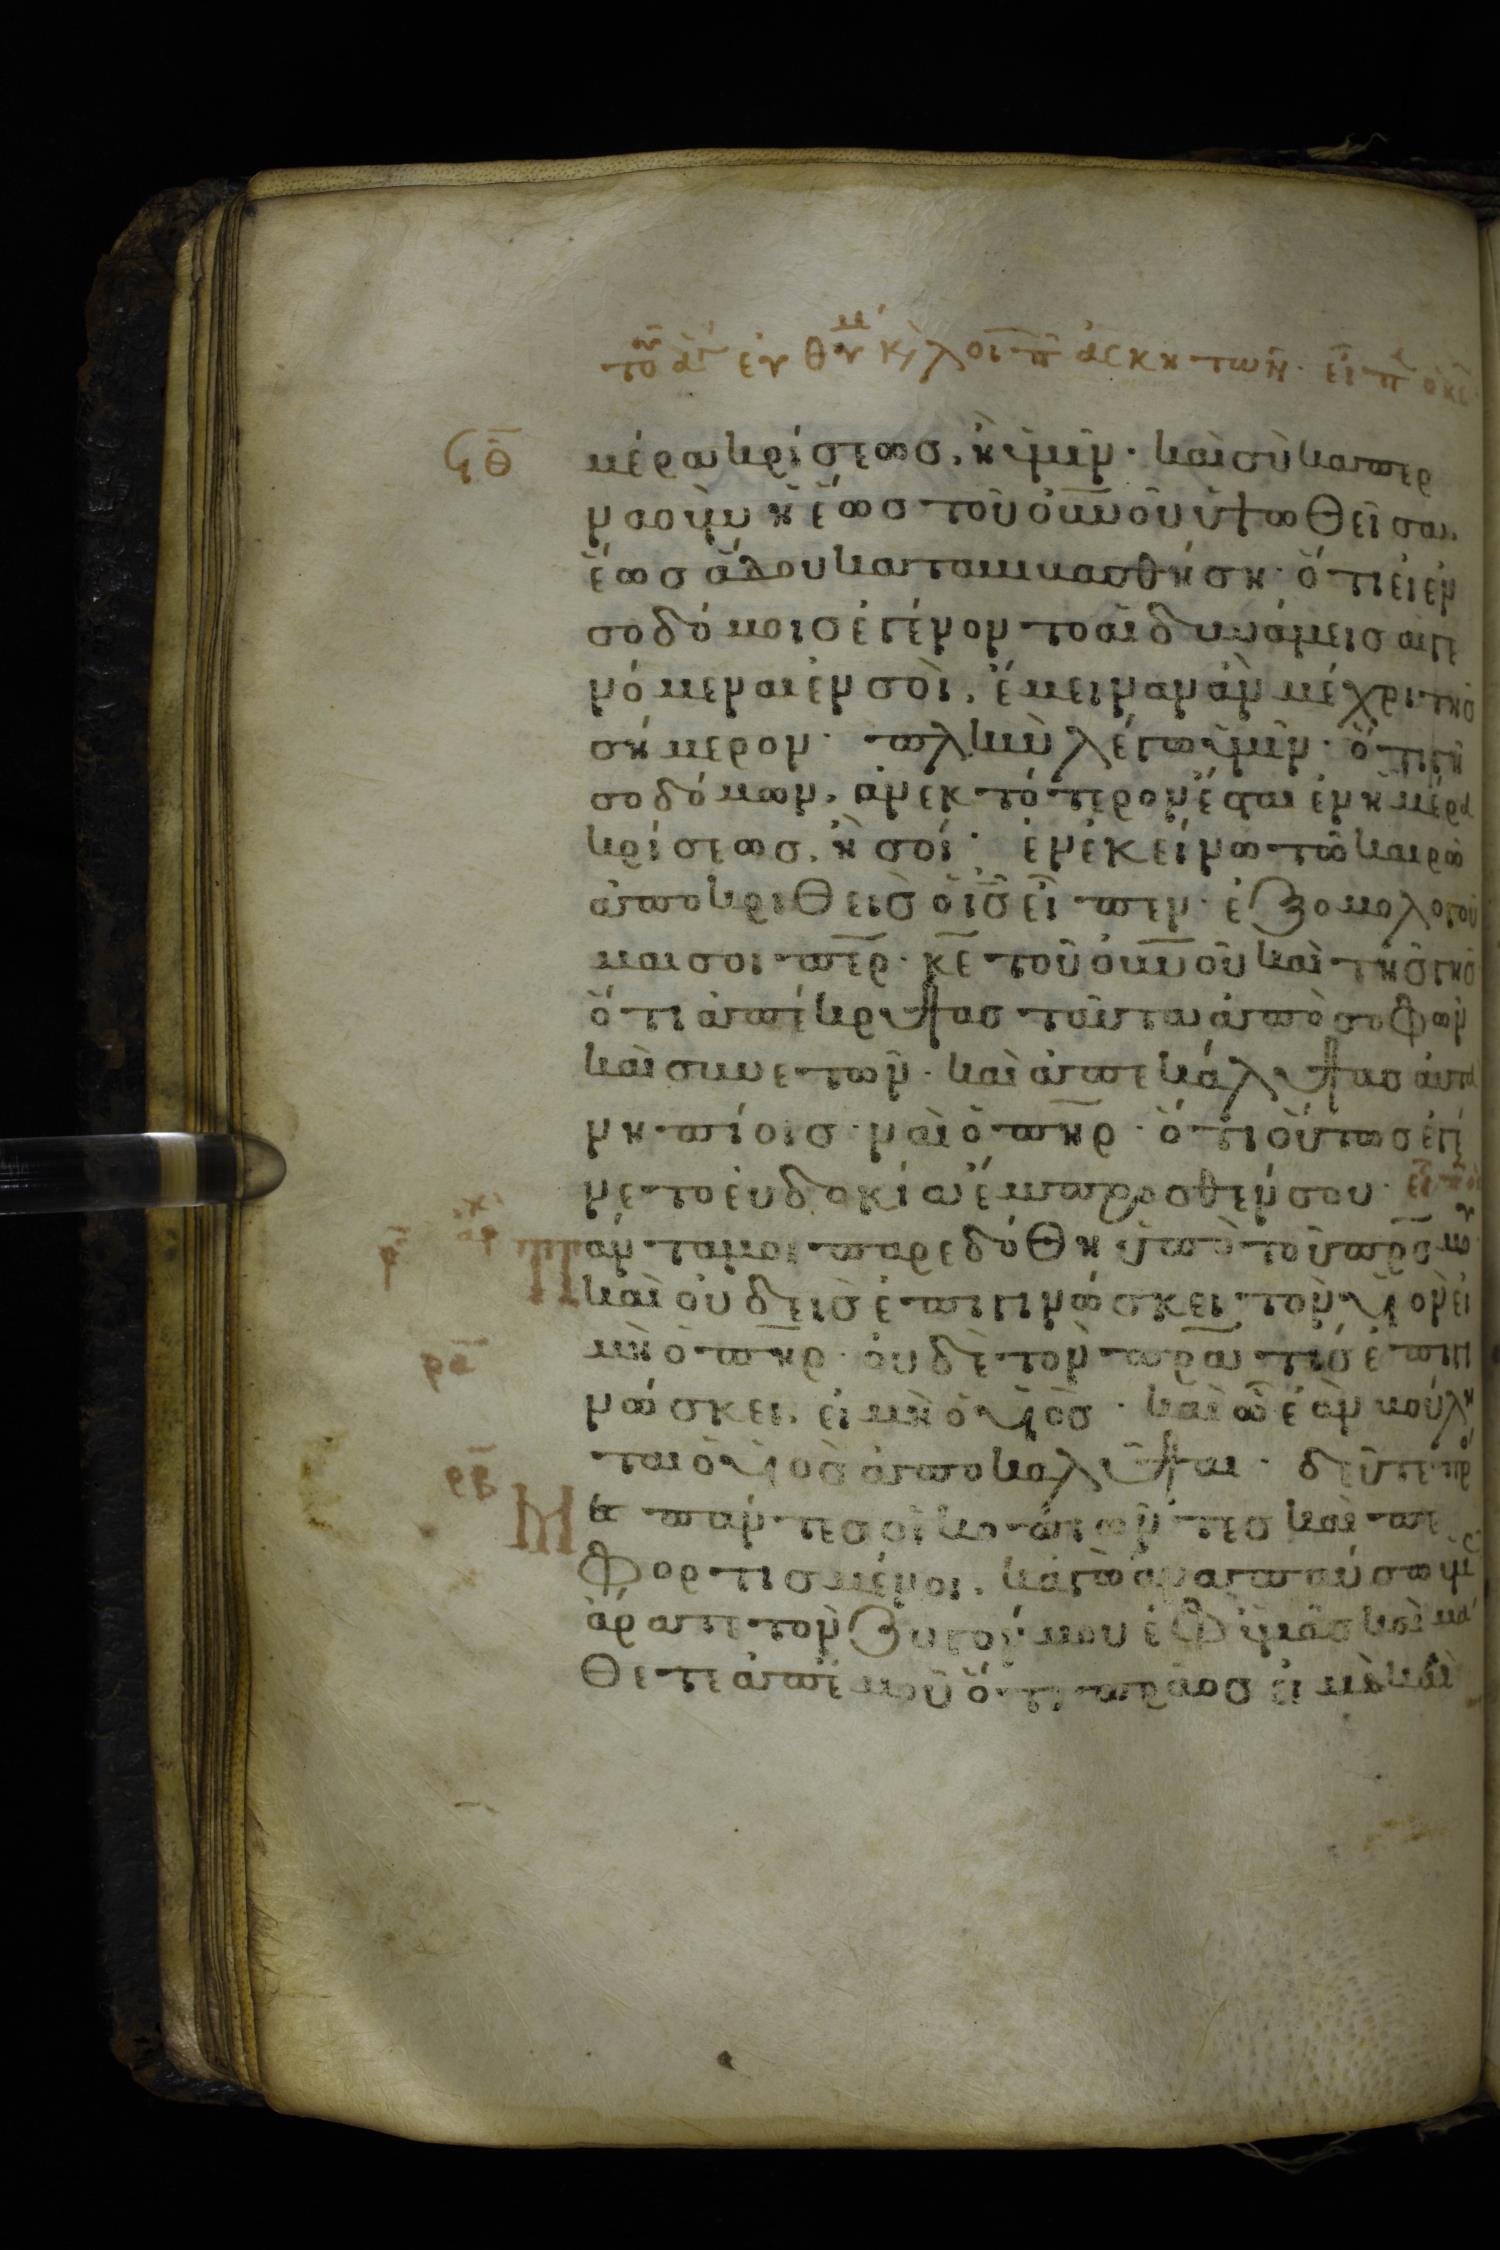 τοῦ ἁγ εὐθυμ κ λοιπ ἀσκητῶν· εἶπ ὁ κς
ϟθ
μέρα κρίσεως, ἢ ὑμῖν· καὶ σὺ καπερ
ναοὺμ ἡ ἕως τοῦ οὐνοῦ ὑψωθεῖσα,
ἕως ἅδου καταβιβασθήση· ὅτι εἰ ἐν
σοδόμοις ἐγένοντο αἱ δυνάμεις αἱ γε
νόμεναι ἐν σοὶ, ἔμειναν ἂν μέχρι τῆς
σήμερον· πλὴν λέγω ὑμῖν· ὅτι γῆ
σοδόμων, ἀνεκτότερον ἔσται ἐν ἡμέρα
κρίσεως, ἢ σοί· ἐν ἐκείνω τῶ καιρῶ
ἀποκριθεὶς ὁ ις εἶπεν· ἐξομολογοῦ
μαι σοι περ· κε τοῦ οὐνοῦ καὶ τῆς γῆς
ὅτι ἀπέκρυψας ταῦτα ἀπὸ σοφῶν
καὶ συνετῶν· καὶ ἀπεκάλυψας αὐτὰ
νηπίοις· ναὶ ὁ πηρ· ὅτι οὕτως ἐγέ
νετο εὐδοκία ἔμπροσθέν σου· εἶπ ὁ κς
ρ
Πάντα μοι παρεδόθη ὑπὸ τοῦ πρς μου
καὶ οὐδεὶς ἐπιγινώσκει τὸν υἱὸν εἰ
ρα
μὴ ὁ πηρ· οὐδὲ τὸν πρα τις ἐπιγι
νώσκει, εἰ μὴ ὁ υἱὸς· καὶ ὧ ἐὰν βούλη
ται ὁ υἱὸς ἀποκαλύψαι· δεῦτε πρ
ρβ
μ ε πάντες οἱ κοπιῶντες καὶ πε
φορτισμένοι, κἀγὼ ἀναπαύσω ὑμᾶς
ἄρατε τὸν ζυγόν μου ἐφ᾽ ὑμᾶς καὶ μά
θετε ἀπ᾽ ἐμοῦ ὅτι πρᾶος εἰμὶ